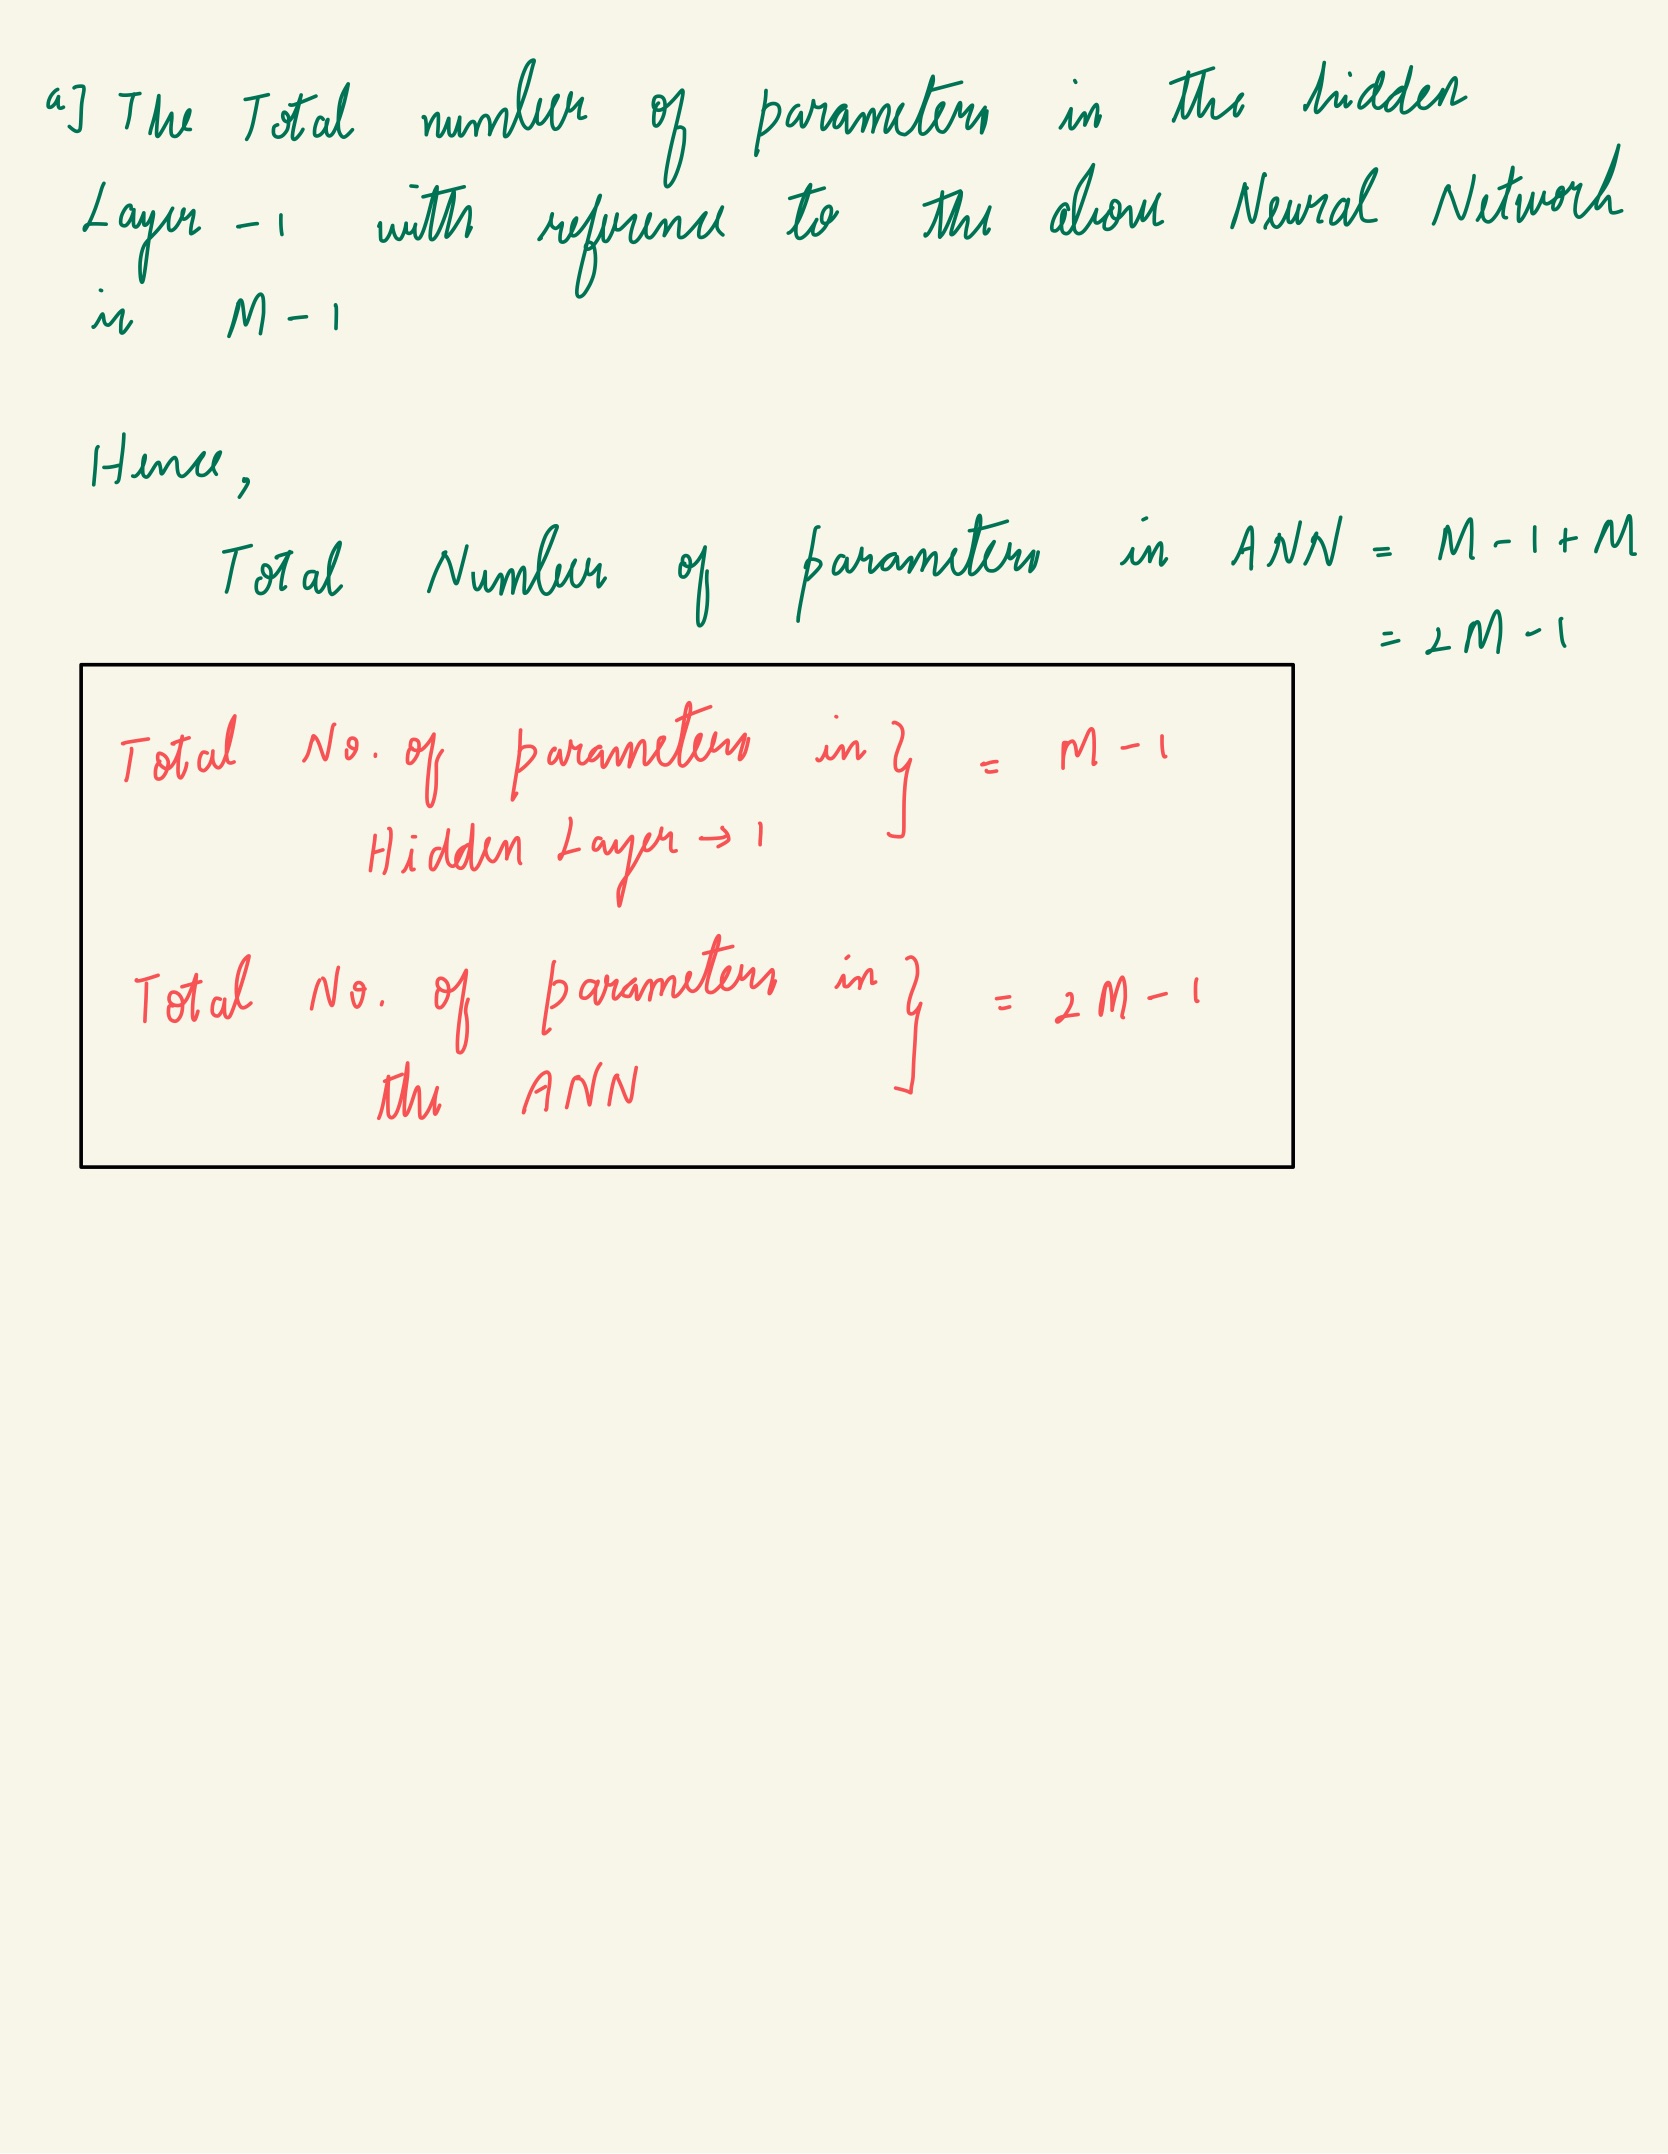 a] The Total number of parameters in the hidden
Layer - 1 with reference to the above Neural Network
is M - 1
Hence,
Total Number of parameters in ANN = M - 1 + M
= 2M - 1
Total No. of parameters in } = M - 1
Hidden Layer → 1
Total No. of parameters in } = 2M - 1
the ANN